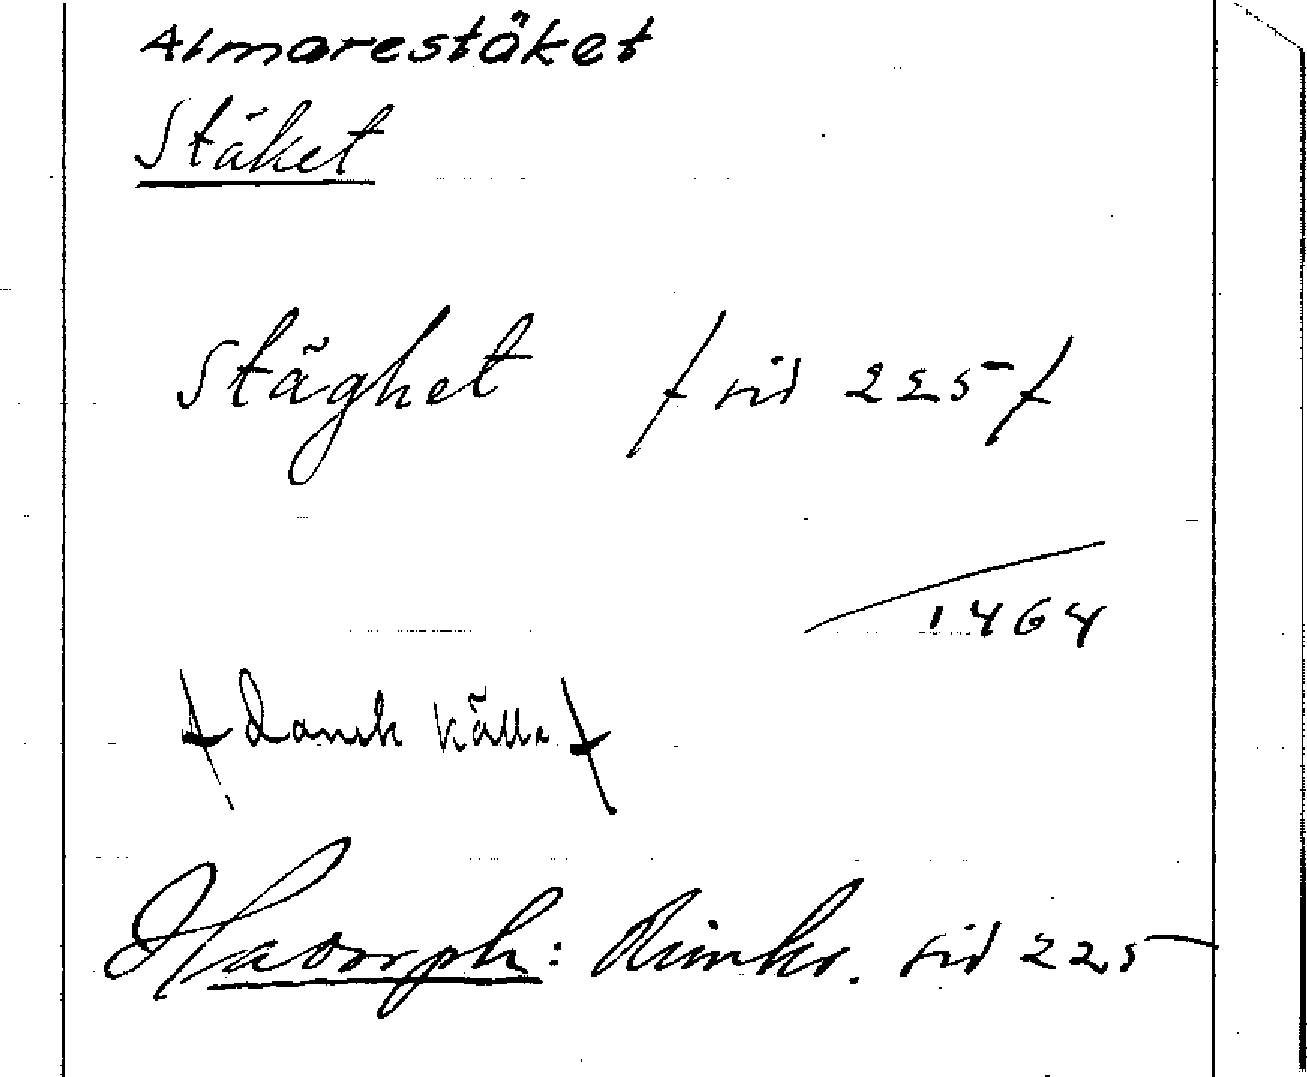 Almarestäket
Stäket
Stäghet / sid 225 /
1464
/ Dansk källa /
Hadorph: Rimkr. sid 225